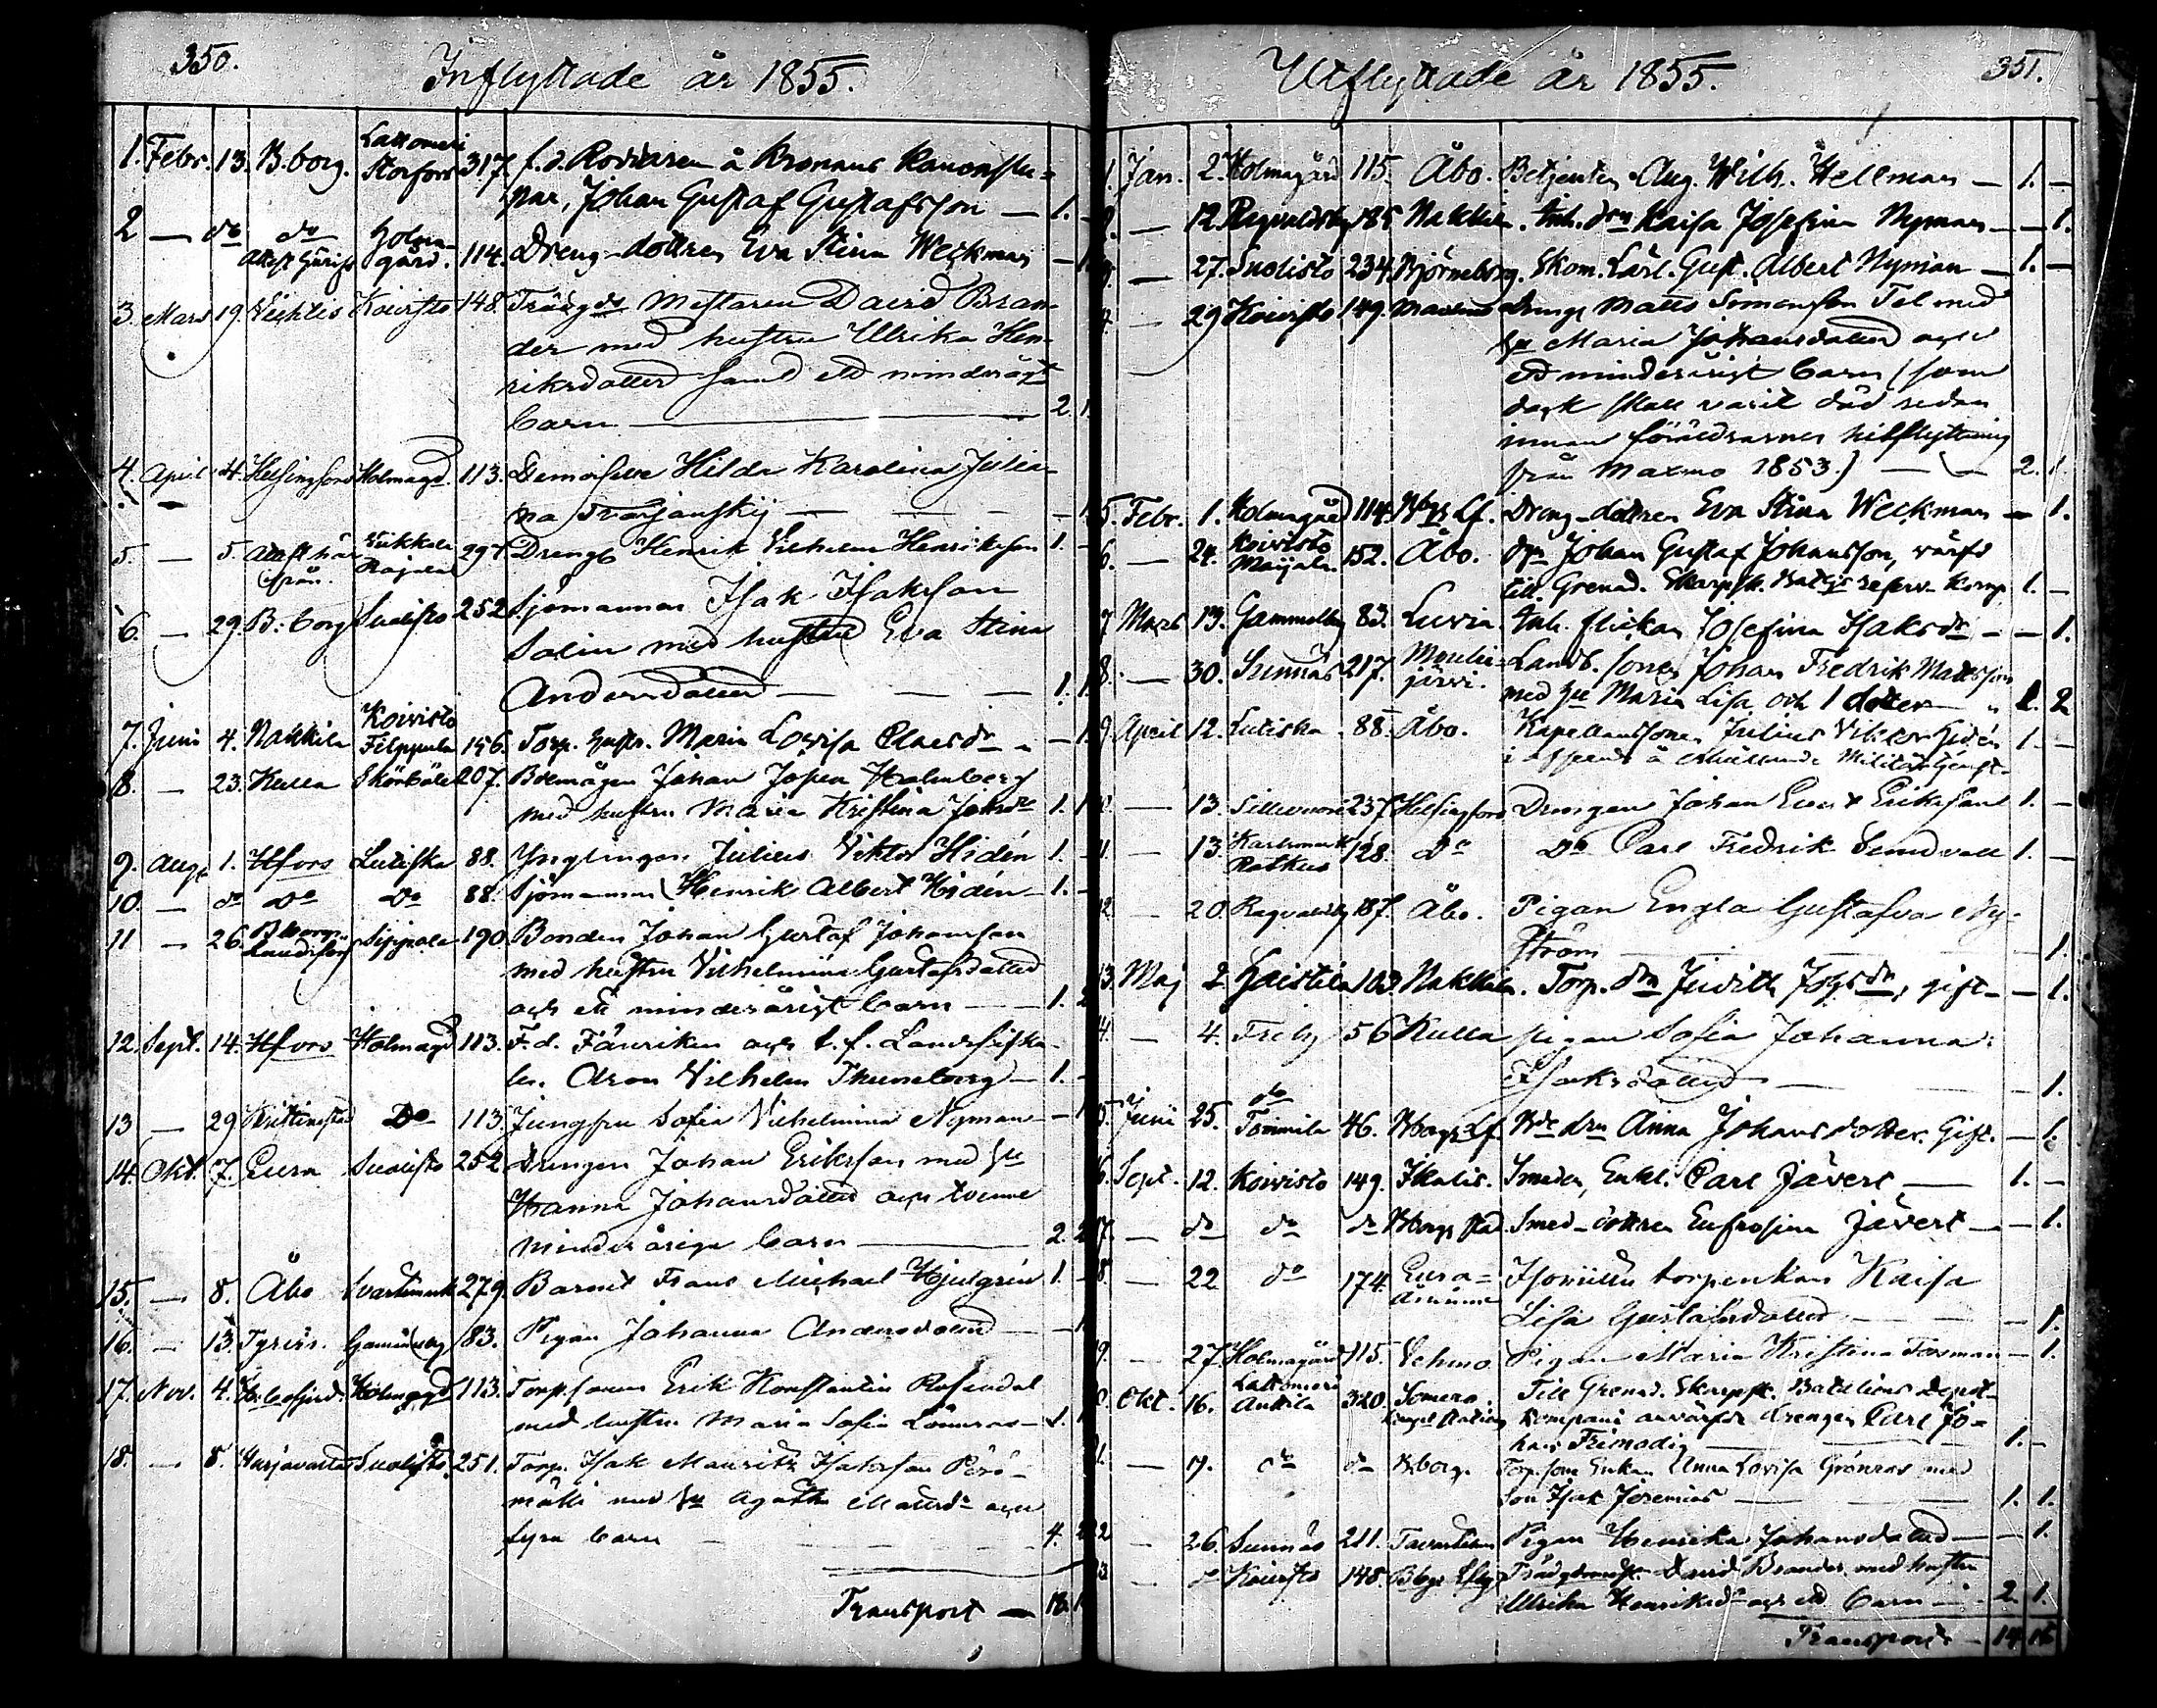 350.
Inflyttade år 1855.
1. Febr. 13. B.borg. Lattomeri Storfors 317. f. d. Roddaren å Kronans Kanonslu-
par, Johan Gustaf Gustafsson — 1. -
2 — do do Holma-
Attest härifr. gård. 114. Dreng-dottren Eva Stina Weckman —
3. Mars 19. Vichtis Koivisto 148. Trädgds Mästaren David Bran-
der med hustru Ulrika Hen-
riksdotter samt ett minderårigt
barn — 2.
4. April 4. Helsingfors Holmagd. 113. Demoiselle Hilda Karolina Julia-
na
5. — 5. Attest här från. 297. Drengen Henrik Vilhelm Henriksson 1. -
6. — 29. B:borg Suolisto 252 Sjömannen Isak Isaksson
Salin med hustru Eva Stina
Andersdotter — 1.
7. Juni 4. Nakkila Koivisto Filppula 156. Torp. hustr. Maria Lovisa Claesdr —
8. — 23. Kulla 207. Johan Holmberg
med hustru Maria Kristina 1. 1
9. Aug. 1. Hfors Lutiska 88. Ynglingen Julius Viktor Hidén 1. -
10. — do do do 88. Sjömannen Henrik Albert Hidén 1. -
11 — 26. B:borgs Landsförs. Sippola 190. Bonden Johan Gustaf Johansson
med hustru Vilhelmina Gustafsdotter
och ett minderårigt barn — 1. 2
12. Sept. 14. Hfors Holmagd 113. F. d. Fänriken och t. f. Landsfiska-
len Aron Vilhelm Thuneberg — 1. -
13 — 29 Kristinestad Do 113. Jungfru Sofia Vilhelmina Nyman —
14. Okt. 7. Eura Suolisto 252. Drengen Johan Eriksson med hu
Hanna Johansdotter och tvenne
minderåriga barn — 2. 2
15. — 8. Åbo Svartsmark 279. Barnet Frans Michael Hjulgrén 1. -
16. — 13. Tyrvis. Gammelby 83. Pigan Johanna Andersdotter —
17. Nov. 4. Holmagd 113. Torp.sonen Erik Konstantin Rosendal
med hustru Maria Sofia 1.
18. — 8. Harjavalta Suolisto 251. Torp. Isak Mauritz Isaksson
med hu Agatha Mattsdr och
fyra barn — 4.
Transport — 18.
Utflyttade år 1855.
351.
1. Jan. 2. Holmagård 115. Åbo. Betjenten Aug. Wilh. Hellman — 1. —
— 12. Ragvaldsby 185 Nakkila. Inh. drn Kaisa Josefina Nyman — — 1.
— 27. Suolisto 234. Björneborg. Skom. Lärl. Gust. Albert Nyman — 1. —
4. — 29 Koivisto 149. Maxmo Dreng Matts Simonsson Tel med
hu Maria Johansdotter och
ett minderårigt barn (som
dock skall varit död redan
innan föräldrarnes hitflyttning
från Maxmo 1853.) — 2. 1.
5. Febr. 1. Holmagård 114. Bbgs Lf. Dreng-dottren Eva Stina Weckman — 1.
6. — 24. Koivisto Maijala 152. Åbo. Dgn Johan Gustaf Johansson, värfd
till Grenad. Skarpsk. Batljs reserv-Komp. 1. —
7 Mars 13. Gammelby 83. Luvia. Inh. flickan Josefina Isaksdr — — 1.
8. — 30. Sunnäs 217. Mouhi-
järvi. Landb. sonen Johan Fredrik Mattsson
med hu Maria Lisa och 1 dotter — 1. 2
9. April 12. Lutiska 88. Åbo. Kapellanssonen Julius Viktor Hidén
i afseende å erhållande Militärtjenst. 1. —
— 13. 237. Helsingfors Drengen Johan Evert Eriksson 1. —
— 13. Karlsmark Ratkus 128. do do Carl Fredrik Sundvall 1. —
12. — 20. Ragvaldsby 187. Åbo. Pigan Engla Gustafva Ny-
ström — 1.
13. Maj 2. Haistila 103. Nakkila. Torp. drn Judith Johsdr, gift — — 1.
4. — 4. Freby 56 Kulla pigan Sofia Johanna
Isaksdotter — 1.
15. Juni 25. do Tommila 46. B:borgs Lf. Bde drn Anna Johansdotter. Gift. — 1.
16. Sept. 12. Koivisto 149. Ikalis. Smeden, Enkl. Carl Jävert, — 1. —
17. — do do do B:borgs stad Smed-dottren Eufrosina Jävert — — 1.
8. — 22 do 174. Eura-
åminne torpenkan Kaisa
Lisa Gustafsdotter — 1.
9. — 27. Holmagård 115. Vehmo. Pigan Maria Kristina Forsman — 1.
Okt. 16. Lattomeri Anttila 320. Somero. Till Grenad. Skarpsk. Bataljons Depot-
Kompani anvärfde drengen Carl Jo-
han Frimodig — 1. —
— 19. do do B:borg. Torp.sons Enkan Anna Lovisa Grönroos med
Son Isak Jeremias — 1. 1.
2 — 26. Sunnäs 211. Tavastkum Pigan Henrika Johansdotter — — 1.
3 — Koivisto 148. B.bgs Lfg Trädgårdsm. David Brander med hustru
Ulrika Henriksdr och ett barn — 2. 1.
Transport — 14 16